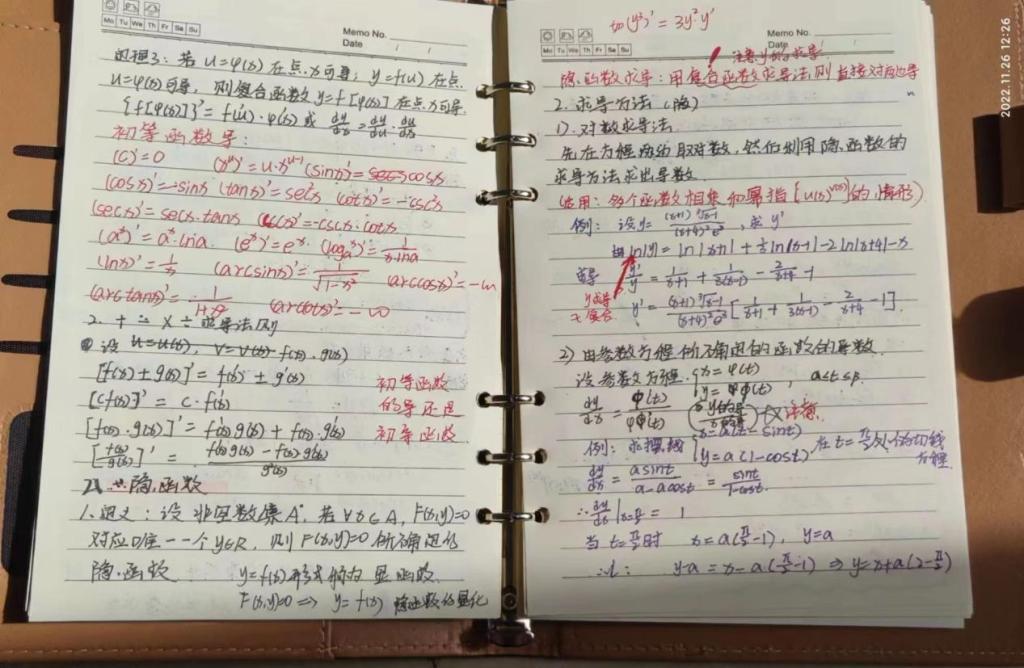 Mo Tu We Th Fr Sa Su
Memo No.
Date / /
定理3：若 u=φ(x) 在点x可导，y=f(u) 在点
u=φ(x)可导，则复合函数 y=f[φ(x)] 在点x可导.
{f[φ(x)]}'=f'(u)·φ'(x) 或 dy/dx = dy/du · du/dx
初等函数导：
(C)'=0 (x^u)'=u·x^(u-1) (sinx)'=cosx
(cosx)'=-sinx (tanx)'=sec²x (cotx)'=-csc²x
(secx)'=secx·tanx (cscx)'=-cscx·cotx
(a^x)'=a^x·lna (e^x)'=e^x (log_a x)'=1/(x·lna)
(lnx)'=1/x (arcsinx)'=1/√(1-x²) (arccosx)'=-
(arctanx)'=1/(1+x²) (arccotx)'=-
2. + - × ÷ 求导法则
设 u=u(x), v=v(x) f(x), g(x)
[f(x)±g(x)]'=f'(x)±g'(x) 初等函数
[Cf(x)]'=C·f'(x) 的导还是
[f(x)·g(x)]'=f'(x)g(x)+f(x)·g'(x) 初等函数
[f(x)/g(x)]'=(f'(x)g(x)-f(x)g'(x))/g²(x)
八 隐函数
1、定义：设非空数集A，若∀x∈A，F(x,y)=0
对应唯一一个y∈R，则F(x,y)=0所确定的
隐函数 y=f(x)形式称为显函数
F(x,y)=0 ⇒ y=f(x) 隐函数的显化
如(y³)'=3y²·y'
Mo Tu We Th Fr Sa Su
Memo No.
Date / /
注意y的求导
隐函数求导：用复合函数求导法则直接对应边导
2. 求导方法（隐）
1). 对数求导法
先在方程两边取对数，然后利用隐函数的
求导方法求出导数
(适用：多个函数相乘和幂指[u(x)^v(x)]的情形)
例：设y=(x+1)∛(x-1)/((x+4)²e^x)，求y'
ln|y|=ln|x+1|+1/3 ln|x-1|-2ln|x+4|-x
求导 y'/y=1/(x+1)+1/(3(x-1))-2/(x+4)-1
y求导
复合
y'=(x+1)∛(x-1)/((x+4)²e^x)[1/(x+1)+1/(3(x-1))-2/(x+4)-1].
2) 由参数方程所确定的函数的导数
设参数方程 {x=φ(t) y=ψ(t)，α≤t≤β.
dy/dx=ψ'(t)/φ'(t) 注意
例：求摆线{x=a(t-sint) y=a(1-cost)，在t=π/2处的切线
方程
dy/dx=asint/(a-acost)=sint/(1-cost)
∴dy/dx|=1
当t=π/2时 x=a(π/2-1)，y=a
∴l: y-a=x-a(π/2-1) ⇒ y=x+a(2-π/2)
2022.11.26 12:26